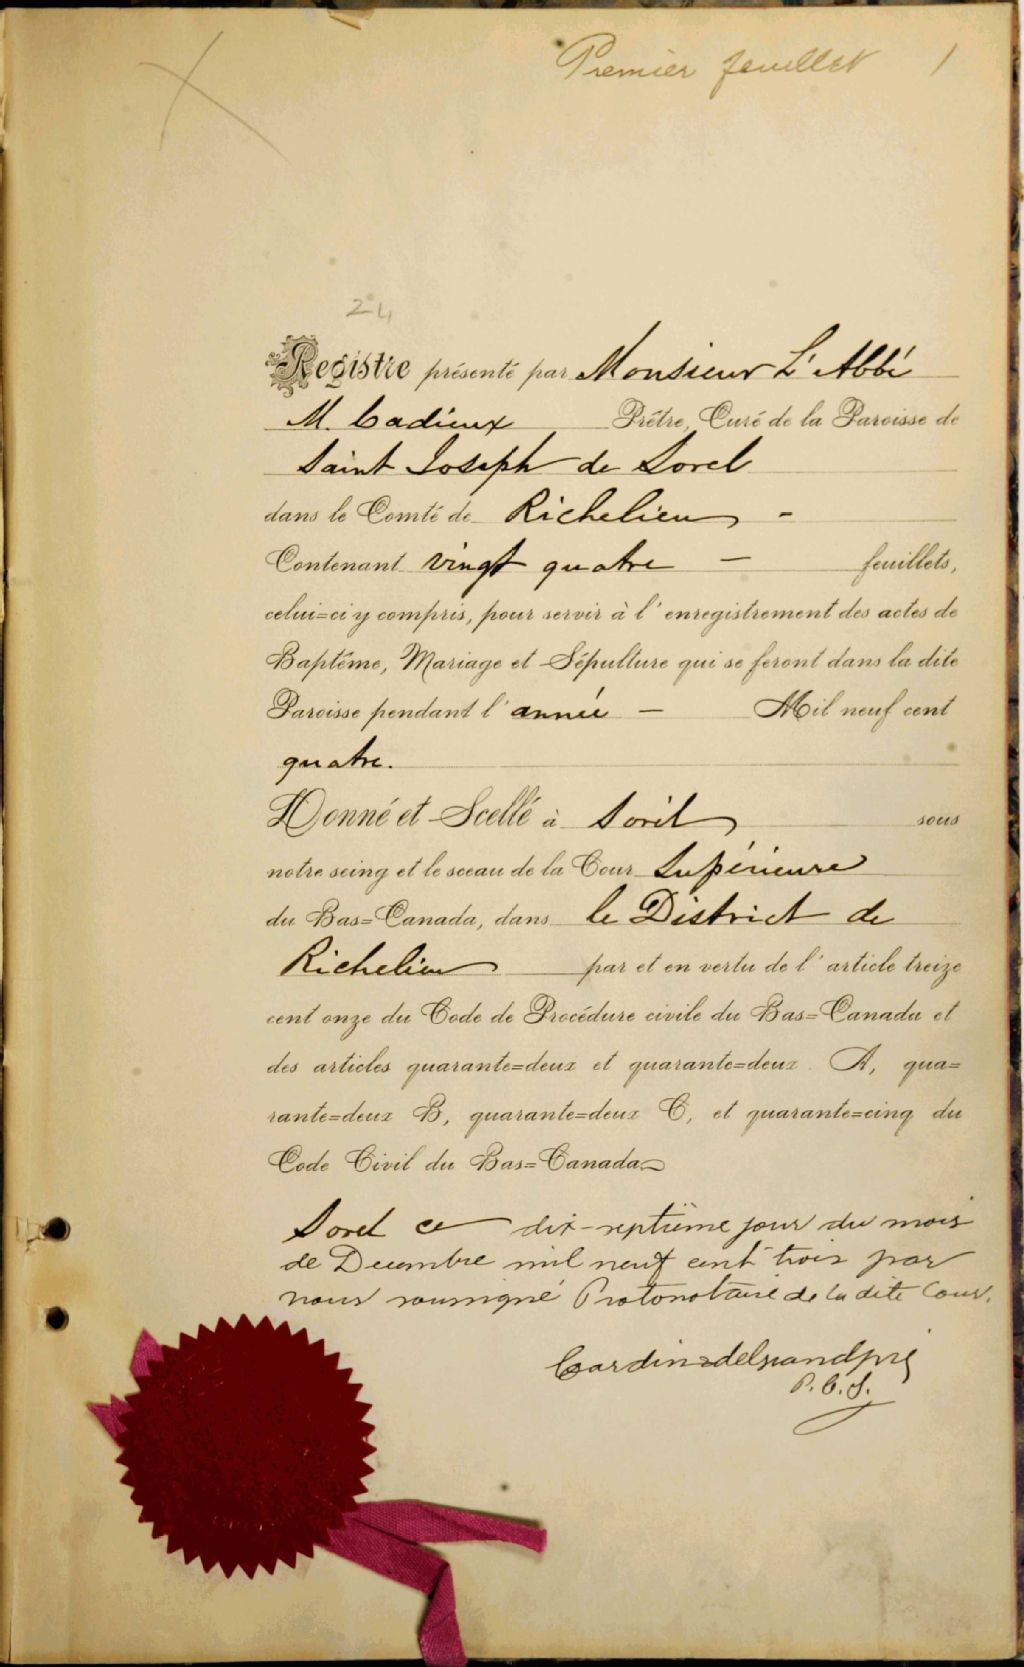 Premier feuillet 1
24
Registre présenté par Monsieur L'Abbé
M. Cadieux Prêtre, Curé de la Paroisse de
Saint Joseph de Sorel
dans le Comté de Richelieu -
Contenant vingt quatre - feuillets,
celui=ci y compris, pour servir à l'enregistrement des actes de
Baptême, Mariage et Sépulture qui se feront dans la dite
Paroisse pendant l'année - Mil neuf cent
quatre.
Donné et Scellé à Sorel sous
notre seing et le sceau de la Cour Supérieure
du Bas=Canada, dans le District de
Richelieu par et en vertu de l'article treize
cent onze du Code de Procédure civile du Bas=Canada et
des articles quarante=deux et quarante=deux A, qua=
rante=deux B, quarante=deux C, et quarante=cinq du
Code Civil du Bas=Canada
Sorel ce dix-septième jour du mois
de Decembre mil neuf cent trois par
nous soussigné Protonotaire de la dite Cour.
Cardin & delgrandpré
P. C. S.